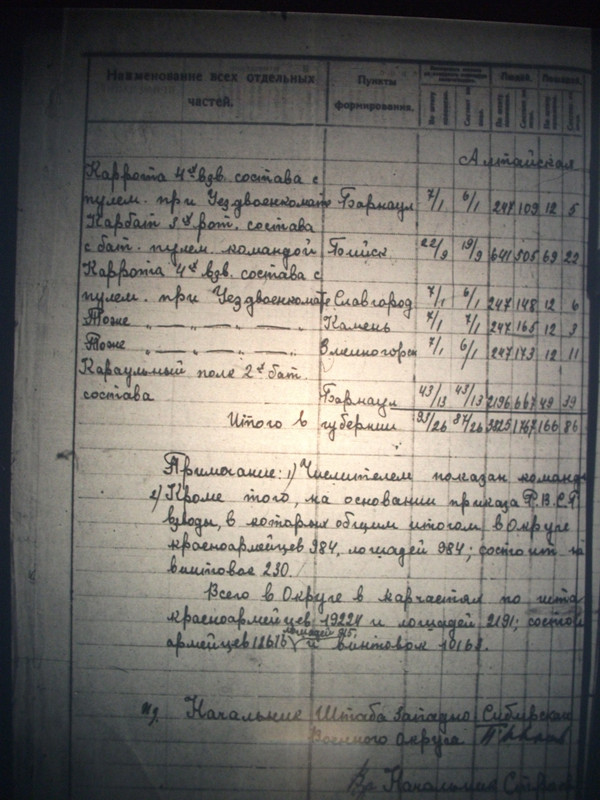 Наименование всех отдельных частей.
Пункты формирования.
Людей. Лошадей.
Алтайская
Каррота 4х взв. состава с
пулем. при Уездвоенкомате Барнаул 7/1 6/1 247 109 12 5
Карбат 3х рот. состава
с бат. пулем. командой Бийск 22/9 19/9 641 505 69 22
Каррота 4х взв. состава с
пулем. при Уездвоенкомате Славгород 7/1 6/1 247 148 12 6
Тоже „ — „ — „ — „ — „ Камень 7/1 7/1 247 165 12 3
Тоже „ — „ — „ — „ — „ Змеиногорск 7/1 6/1 247 173 12 11
Караульный полк 2х бат.
состава Барнаул 43/13 43/13 2196 667 49 39
Итого в губернии 93/26 87/26 3825 1767 166 86
Примечание: 1) Числителем показан команд
2) Кроме того, на основании приказа Р.В.С.Р
взводы, в которых общим итогом в Округе
красноармейцев 984, лошадей 984; состоит на
винтовок 230.
Всего в Округе в карчастях по шта
красноармейцев 19224 и лошадей 2191; состои
лошадей 915
армейцев 11616 и винтовок 10168.
Начальник Штаба Западно Сибирского
Военного Округа
Вр. Начальник